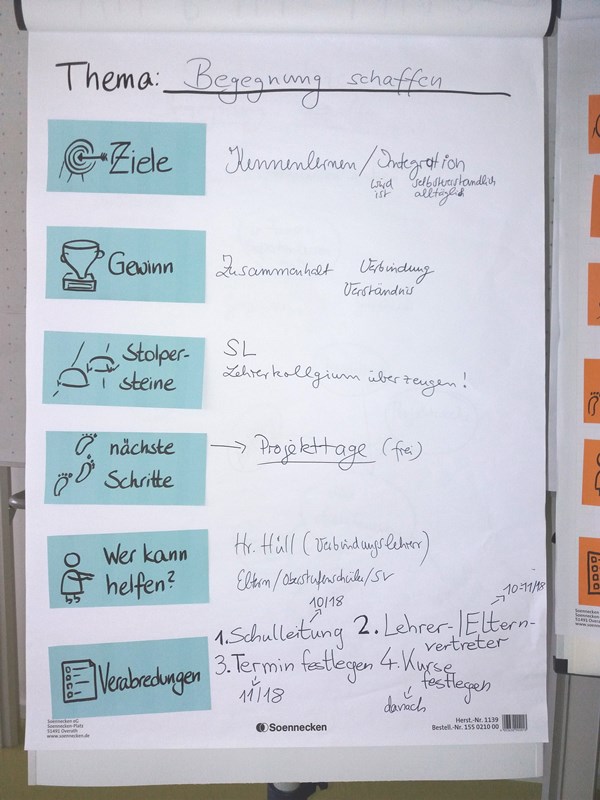 Thema: Begegnung schaffen
Ziele
Kennenlernen / Integration
wird selbstverständlich
ist alltäglich
Gewinn
Zusammenhalt Verbindung
Verständnis
Stolper-
steine
SL
Lehrerkollgium überzeugen!
nächste
Schritte
→ Projekttage (frei)
Wer kann
helfen?
Hr. Hüll (Verbindungslehrer)
Eltern/Oberstufenschüler/SV
Verabredungen
10/18
10-11/18
1. Schulleitung 2. Lehrer-/Eltern-
vertreter
3. Termin festlegen 4. Kurse
festlegen
11/18
danach
Soennecken eG
Soennecken-Platz
51491 Overath
www.soennecken.de
Soennecken
Herst.-Nr. 1139
Bestell.-Nr. 155 0210 00